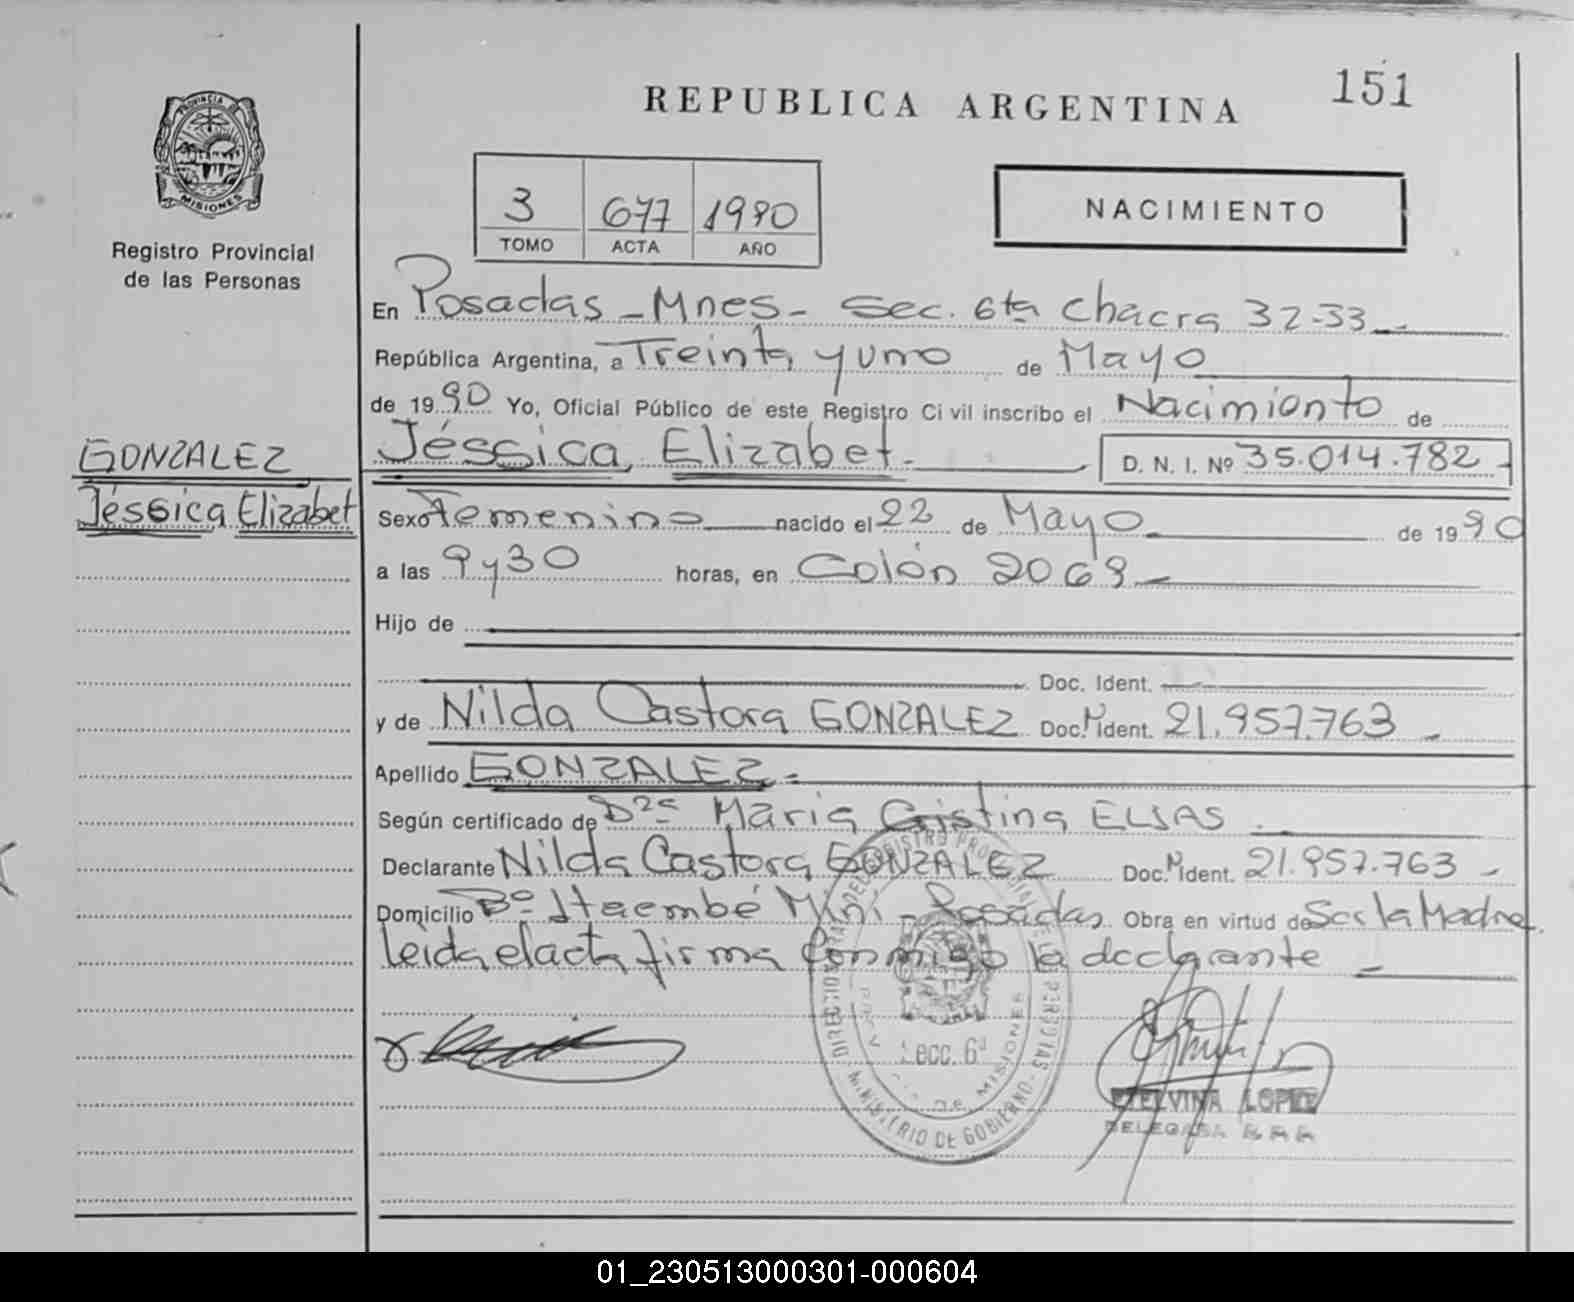 REPUBLICA ARGENTINA
151
PROVINCIA DE
MISIONES
Registro Provincial
de las Personas
3 677 1990
TOMO ACTA AÑO
NACIMIENTO
En Posadas - Mnes - Sec. 6ta Chacra 32-33
República Argentina, a Treinta y uno de Mayo
de 1990 Yo, Oficial Público de este Registro Civil inscribo el Nacimiento de
GONZALEZ
Jéssica Elizabet
Jéssica, Elizabet D. N. I. Nº 35.014.782
Sexo Femenino nacido el 22 de Mayo de 1990
a las 9 y 30 horas, en Colón 2069
Hijo de
Doc. Ident.
y de Nilda Castora GONZALEZ Doc. N Ident. 21.957.763
Apellido GONZALEZ
Según certificado de Dra María Cristina ELIAS
Declarante Nilda Castora GONZALEZ Doc. N Ident. 21.957.763
Domicilio Bº Itaembé Mini - Posadas Obra en virtud de Ser la Madre
leida el acta firma conmigo la declarante
REGISTRO PROVINCIAL DE LAS PERSONAS
MINISTERIO DE GOBIERNO
Secc. 6ª
DE MISIONES
ETELVINA LOPEZ
DELEGADA
01_230513000301-000604